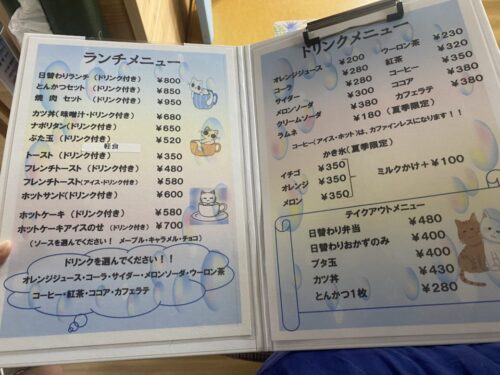 ランチメニュー
日替わりランチ (ドリンク付き) ¥800
とんかつセット (ドリンク付き) ¥850
焼肉セット (ドリンク付き) ¥950
カツ丼(味噌汁・ドリンク付き) ¥680
ナポリタン(ドリンク付き) ¥650
ぶた玉 (ドリンク付き) ¥520
軽食
トースト (ドリンク付き) ¥350
フレンチトースト (ドリンク付き) ¥480
フレンチトースト(アイス・ドリンク付き) ¥580
ホットサンド(ドリンク付き) ¥600
ホットケーキ (ドリンク付き) ¥580
ホットケーキアイスのせ (ドリンク付き) ¥700
(ソースを選んでください! メープル・キャラメル・チョコ)
ドリンクを選んでください!!
オレンジジュース・コーラ・サイダー・メロンソーダ・ウーロン茶
コーヒー・紅茶・ココア・カフェラテ
ドリンクメニュー
オレンジジュース ¥200 ウーロン茶 ¥230
コーラ ¥280 紅茶 ¥320
サイダー ¥280 コーヒー ¥350
メロンソーダ ¥300 ココア ¥380
クリームソーダ ¥380 カフェラテ ¥380
ラムネ ¥180 (夏季限定)
コーヒー(アイス・ホット)は、カフェインレスになります!!
かき氷(夏季限定)
イチゴ ¥350
オレンジ ¥350 ミルクかけ+¥100
メロン ¥350
テイクアウトメニュー
日替わり弁当 ¥480
日替わりおかずのみ ¥430
ブタ玉 ¥400
カツ丼 ¥430
とんかつ1枚 ¥280